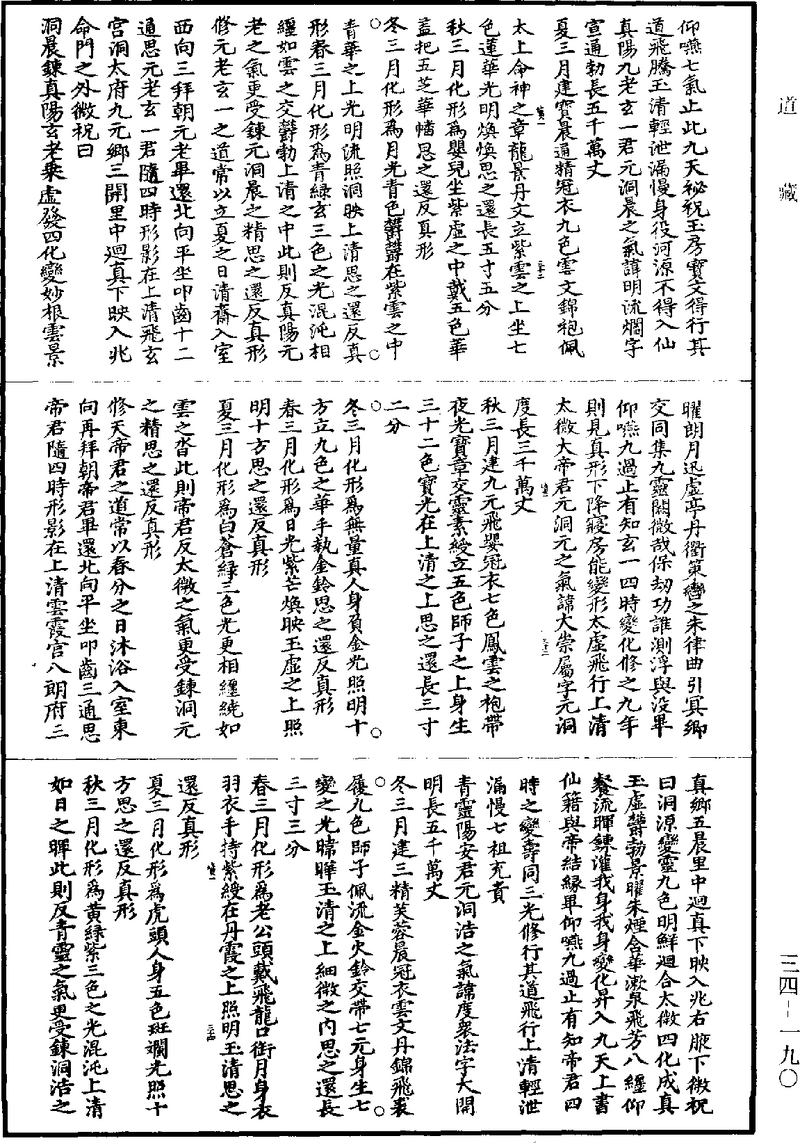 道藏
三四－一九〇
仰嚥七氣止此九天祕祝玉房寶文得行其
道飛騰玉清輕泄漏慢身役河源不得入仙
真陽九老玄一君元洞晨之氣諱明流爛字
宣通勃長五千萬丈
夏三月建寶晨通精冠衣九色雲文錦袍佩
太上命神之章龍景丹文立紫雲之上坐七
色蓮華光明煥煥思之還長五寸五分
秋三月化形為嬰兒坐紫虛之中戴五色華
蓋把五芝華幡思之還反真形
冬三月化形為月光青色欝欝在紫雲之中
青華之上光明流照洞映上清思之還反真
形春三月化形為青綠玄三色之光混沌相
纏如雲之交欝勃上清之中此則反真陽元
老之氣更受鍊元洞晨之精思之還反真形
修元老玄一之道常以立夏之日清齋入室
西向三拜朝元老畢還北向平坐叩齒十二
通思元老玄一君隨四時形影在上清飛玄
宮洞太府九元鄉三開里中迴真下映入兆
命門之外微祝曰
洞晨鍊真陽玄老乘虛發四化變妙根雲景
曜朗月迅虛亭丹衢策轡之朱律曲引冥鄉
交同集九靈闕微哉保劫功誰測浮與沒畢
仰嚥九過止有知玄一四時變化修之九年
則見真形下降寢房能變形太虛飛行上清
太微大帝君元洞元之氣諱大崇屬字元洞
度長三千萬丈
秋三月建九元飛嬰冠衣七色鳳雲之袍帶
夜光寶章交靈素綬立五色師子之上身生
三十二色寶光在上清之上思之還長三寸
二分
冬三月化形為無量真人身負金光照明十
方立九色之華手執金鈴思之還反真形
春三月化形為日光紫芒煥映玉虛之上照
明十方思之還反真形
夏三月化形為白蒼綠三色光更相纏繞如
雲之沓此則帝君反太微之氣更受鍊洞元
之精思之還反真形
修天帝君之道常以春分之日沐浴入室東
向再拜朝帝君畢還北向平坐叩齒三通思
帝君隨四時形影在上清雲霞宮八朗府三
真鄉五晨里中迴真下映入兆右腋下微祝
曰洞源變靈九色明鮮迴合太微四化成真
玉虛欝勃景曜朱煙含華漱泉飛芳八纏仰
餐流暉鍊灌我身我身變化昇入九天上書
仙籍與帝結緣畢仰嚥九過止有知帝君四
時之變壽同三光修行其道飛行上清輕泄
漏慢七祖充責
青靈陽安君元洞浩之氣諱度衆法字大開
明長五千萬丈
冬三月建三精芙蓉晨冠衣雲文丹錦飛裘
履九色師子佩流金火鈴交帶七元身生七
變之光暐曄玉清之上細微之內思之還長
三寸三分
春三月化形為老公頭戴飛龍口銜月身衣
羽衣手持紫綬在丹霞之上照明玉清思之
還反真形
夏三月化形為虎頭人身五色斑斕光照十
方思之還反真形
秋三月化形為黃綠紫三色之光混沌上清
如日之暉此則反青靈之氣更受鍊洞浩之